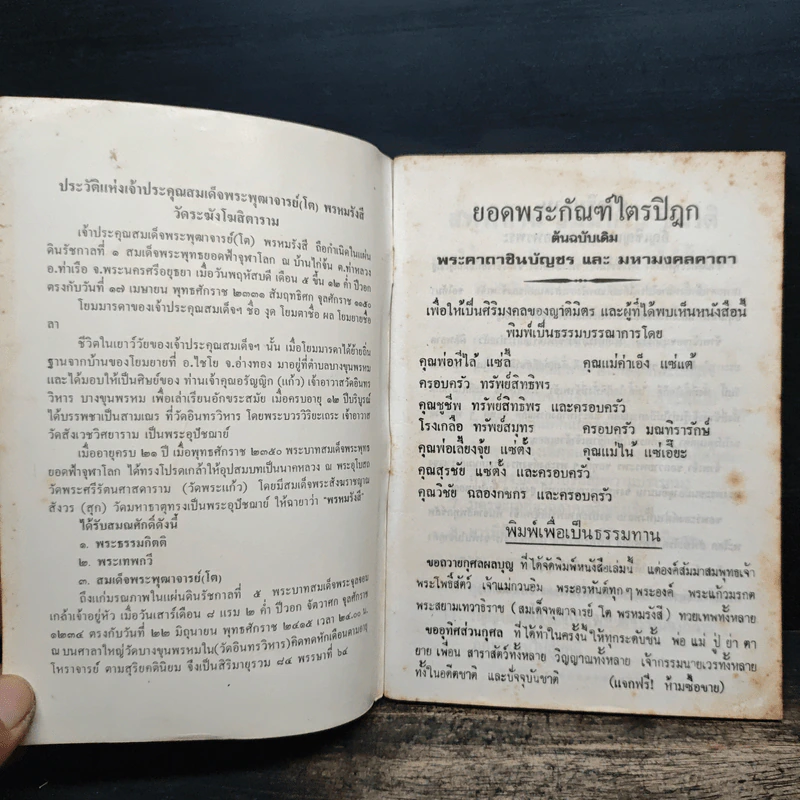 ประวัติแห่งเจ้าประคุณสมเด็จพระพุฒาจารย์(โต) พรหมรังสี
วัดระฆังโฆสิตาราม
เจ้าประคุณสมเด็จพระพุฒาจารย์(โต) พรหมรังสี ถือกำเนิดในแผ่น
ดินรัชกาลที่ ๑ สมเด็จพระพุทธยอดฟ้าจุฬาโลก ณ บ้านไก่จ้น ต.ท่าหลวง
อ.ท่าเรือ จ.พระนครศรีอยุธยา เมื่อวันพฤหัสบดี เดือน ๕ ขึ้น ๑๒ ค่ำ ปีวอก
ตรงกับวันที่ ๑๗ เมษายน พุทธศักราช ๒๓๓๑ สัมฤทธิศก จุลศักราช ๑๑๕๐
โยมมารดาของเจ้าประคุณสมเด็จฯ ชื่อ งุด โยมตาชื่อ ผล โยมยายชื่อ
ลา
ชีวิตในเยาว์วัยของเจ้าประคุณสมเด็จฯ นั้น เมื่อโยมมารดาได้ย้ายถิ่น
ฐานจากบ้านของโยมยายที่ อ.ไชโย จ.อ่างทอง มาอยู่ที่ตำบลบางขุนพรหม
และได้มอบให้เป็นศิษย์ของ ท่านเจ้าคุณอรัญญิก (แก้ว) เจ้าอาวาสวัดอินทร
วิหาร บางขุนพรหม เพื่อเล่าเรียนอักขระสมัย เมื่อครบอายุ ๑๒ ปีบริบูรณ์
ได้บรรพชาเป็นสามเณร ที่วัดอินทรวิหาร โดยพระบวรวิริยะเถระ เจ้าอาวาส
วัดสังเวชวิศยาราม เป็นพระอุปัชฌาย์
เมื่ออายุครบ ๒๑ ปี เมื่อพุทธศักราช ๒๓๕๐ พระบาทสมเด็จพระพุทธ
ยอดฟ้าจุฬาโลก ได้ทรงโปรดเกล้าให้อุปสมบทเป็นนาคหลวง ณ พระอุโบสถ
วัดพระศรีรัตนศาสดาราม (วัดพระแก้ว) โดยมีสมเด็จพระสังฆราชญาณ
สังวร (สุก) วัดมหาธาตุทรงเป็นพระอุปัชฌาย์ ให้ฉายาว่า "พรหมรังสี"
ได้รับสมณศักดิ์ดังนี้
๑. พระธรรมกิตติ
๒. พระเทพกวี
๓. สมเด็จพระพุฒาจารย์(โต)
ถึงแก่มรณภาพในแผ่นดินรัชกาลที่ ๕ พระบาทสมเด็จพระจุลจอม
เกล้าเจ้าอยู่หัว เมื่อวันเสาร์เดือน ๘ แรม ๒ ค่ำ ปีวอก จัตวาศก จุลศักราช
๑๒๓๔ ตรงกับวันที่ ๒๒ มิถุนายน พุทธศักราช ๒๔๑๕ เวลา ๒๔.๐๐ น.
ณ บนศาลาใหญ่วัดบางขุนพรหมใน(วัดอินทรวิหาร)คิดหดหักเดือนตามอายุ
โหราจารย์ ตามสุริยคตินิยม จึงเป็นสิริมายุรวม ๘๔ พรรษาที่ ๖๔
ยอดพระกัณฑ์ไตรปิฎก
ต้นฉบับเดิม
พระคาถาชินบัญชร และ มหามงคลคาถา
เพื่อให้เป็นศิริมงคลของญาติมิตร และผู้ที่ได้พบเห็นหนังสือนี้
พิมพ์เป็นธรรมบรรณาการโดย
คุณพ่อหีไล้ แซ่ลี้ คุณแม่ค่าเอ็ง แซ่แต้
ครอบครัว ทรัพย์สิทธิพร
คุณชูชีพ ทรัพย์สิทธิพร และครอบครัว
โรงเกลือ ทรัพย์สมุทร ครอบครัว มณฑิรารักษ์
คุณพ่อเลี้ยงจุ้ย แซ่ตั้ง คุณแม่ไน้ แซ่เอี๊ยะ
คุณสุรชัย แซ่ตั้ง และครอบครัว
คุณวิชัย ฉลองกชกร และครอบครัว
พิมพ์เพื่อเป็นธรรมทาน
ขอถวายกุศลผลบุญ ที่ได้จัดพิมพ์หนังสือเล่มนี้ แด่องค์สัมมาสมพุทธเจ้า
พระโพธิ์สัตว์ เจ้าแม่กวนอิม พระอรหันต์ทุกๆพระองค์ พระแก้วมรกต
พระสยามเทวาธิราช (สมเด็จพุฒาจารย์ โต พรหมรังสี) ทวยเทพทั้งหลาย
ขออุทิศส่วนกุศล ที่ได้ทำในครั้งนี้ ให้ทุกระดับชั้น พ่อ แม่ ปู่ ย่า ตา
ยาย เพื่อน สาราสัตว์ทั้งหลาย วิญญาณทั้งหลาย เจ้ากรรมนายเวรทั้งหลาย
ทั้งในอดีตชาติ และปัจจุบันชาติ (แจกฟรี! ห้ามซื้อขาย)